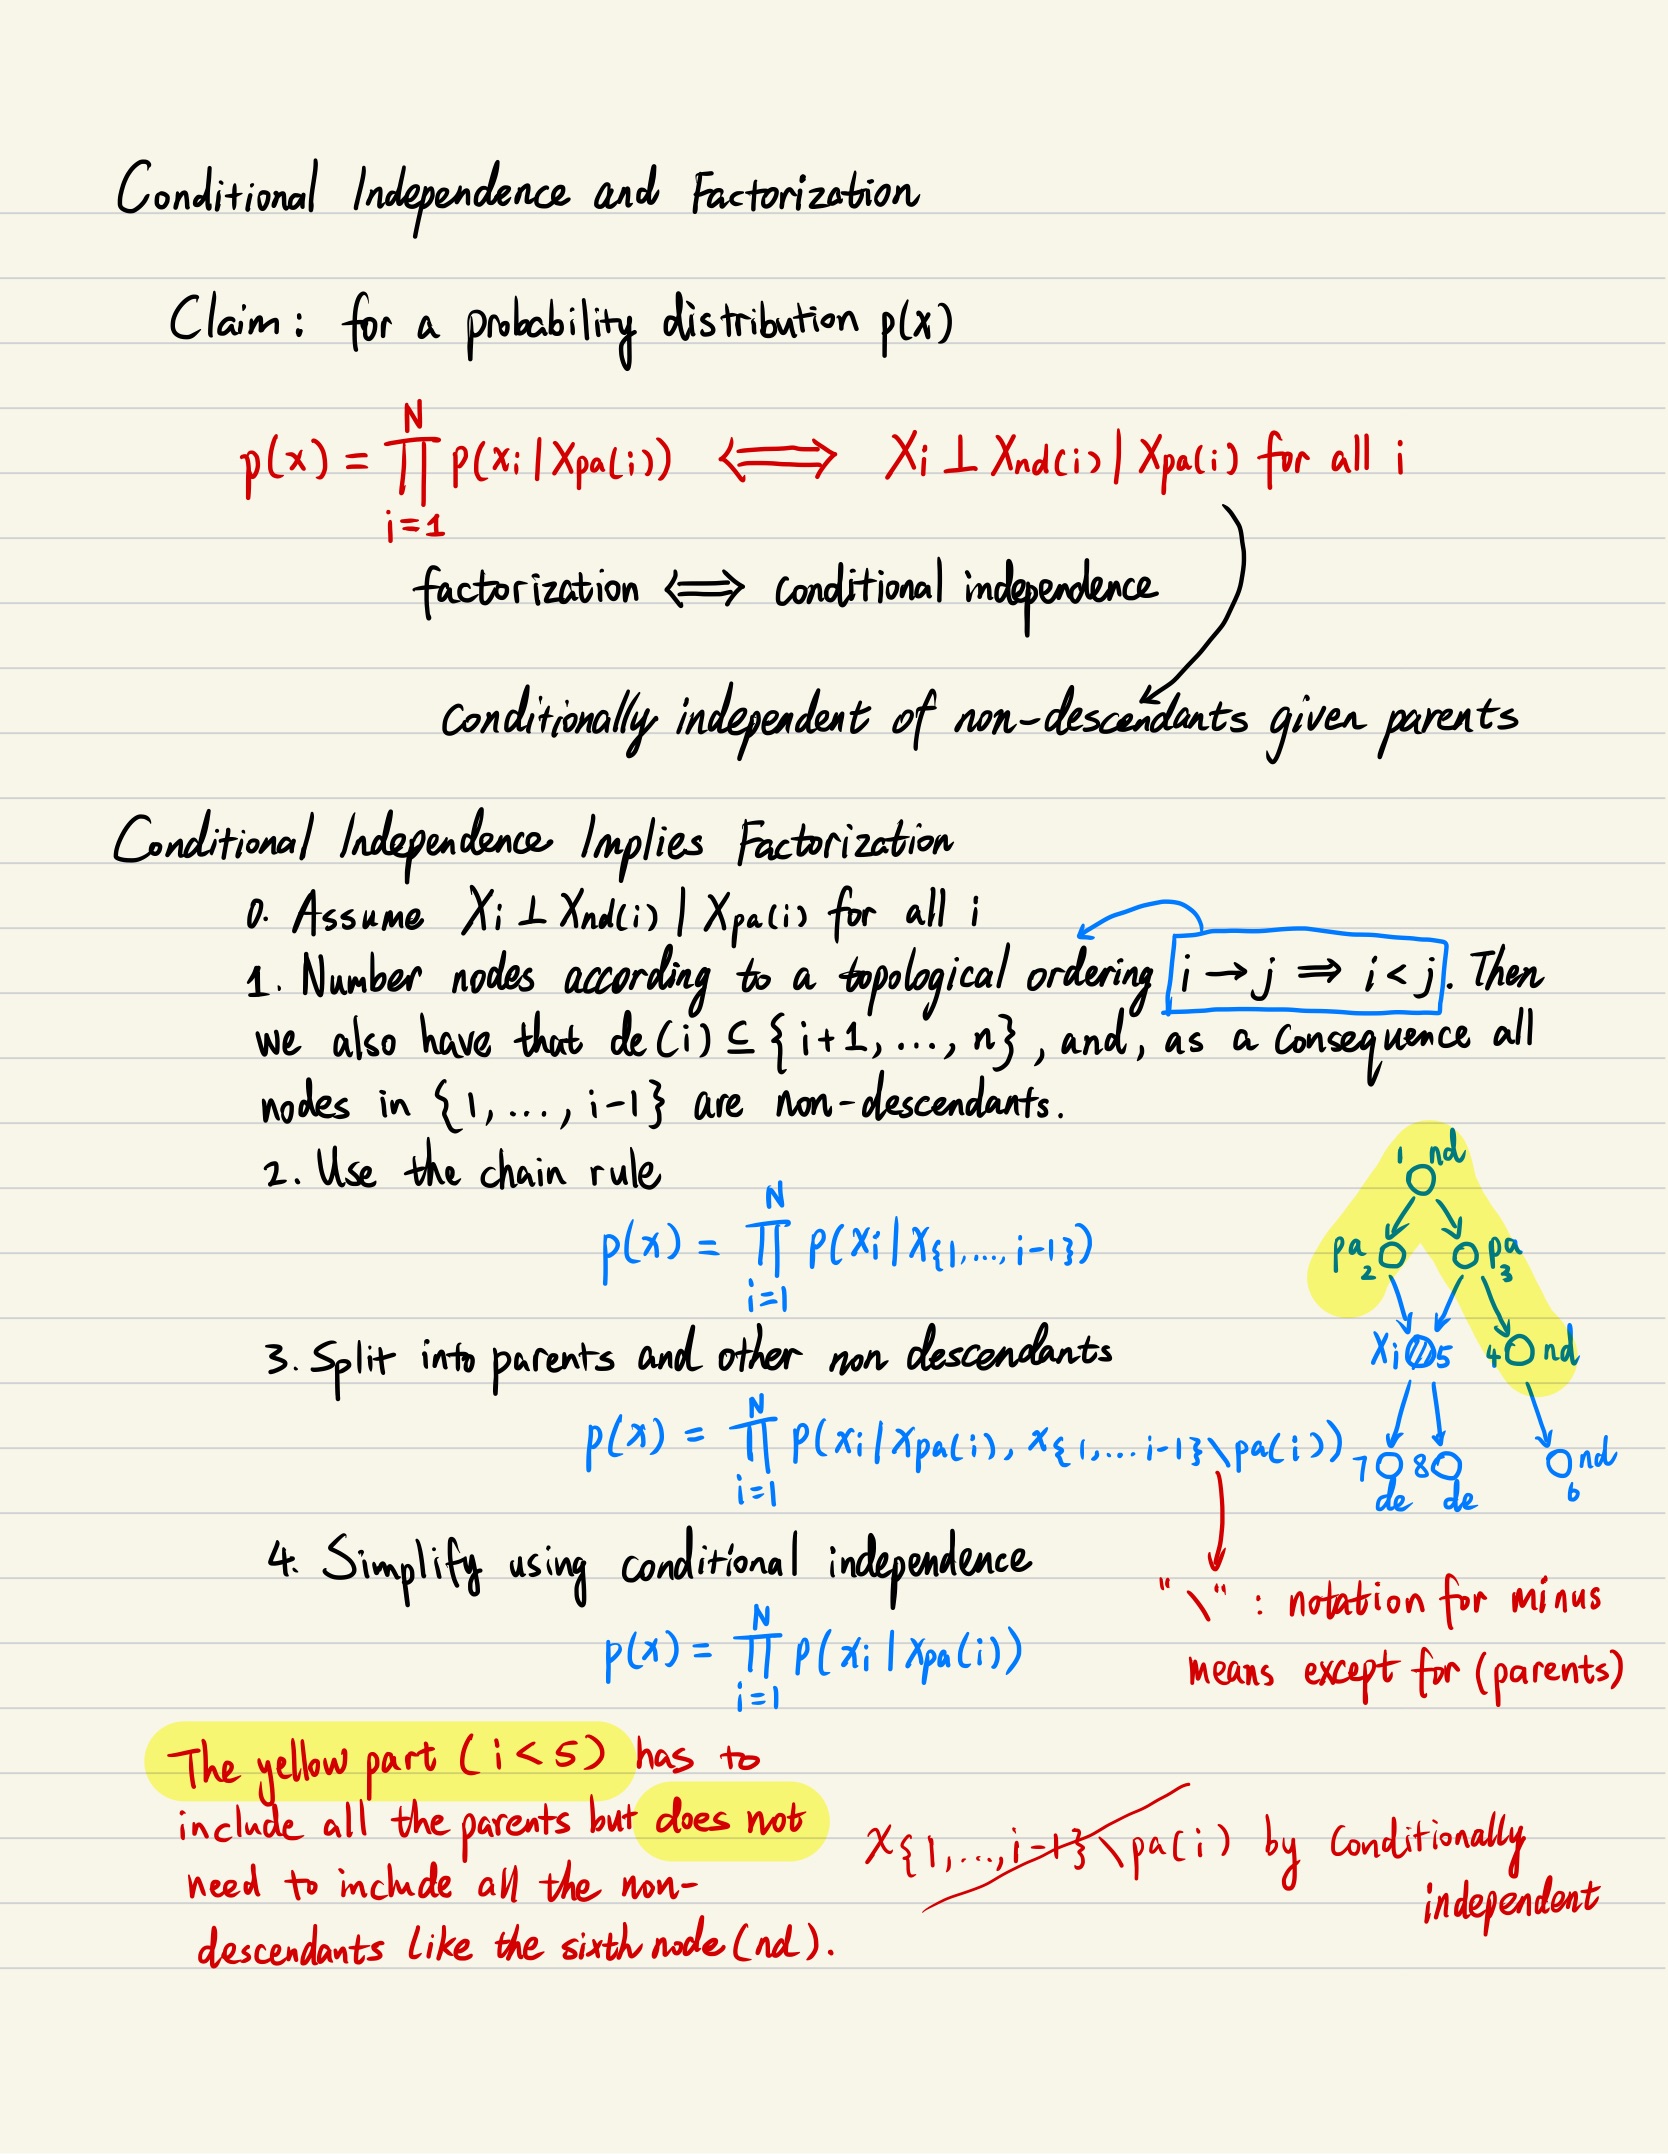 Conditional Independence and Factorization
Claim: for a probability distribution p(x)
p(x) = ∏_{i=1}^{N} p(x_i | x_{pa(i)}) ⟺ X_i ⊥ X_{nd(i)} | X_{pa(i)} for all i
factorization ⟺ conditional independence
conditionally independent of non-descendants given parents
Conditional Independence Implies Factorization
0. Assume X_i ⊥ X_{nd(i)} | X_{pa(i)} for all i
1. Number nodes according to a topological ordering i → j ⇒ i < j. Then
we also have that de(i) ⊆ {i+1, ..., n}, and, as a consequence all
nodes in {1, ..., i-1} are non-descendants.
2. Use the chain rule
p(x) = ∏_{i=1}^{N} p(x_i | x_{{1, ..., i-1}})
1 nd
pa 2
pa 3
3. Split into parents and other non descendants
X_i 5
4 nd
p(x) = ∏_{i=1}^{N} p(x_i | x_{pa(i)}, x_{{1, ... i-1}\pa(i)})
7 de
8 de
nd 6
4. Simplify using conditional independence
"\" : notation for minus
means except for (parents)
p(x) = ∏_{i=1}^{N} p(x_i | x_{pa(i)})
The yellow part (i < 5) has to
include all the parents but does not
need to include all the non-
descendants like the sixth node (nd).
x_{{1, ..., i-1}\pa(i)} by conditionally
independent